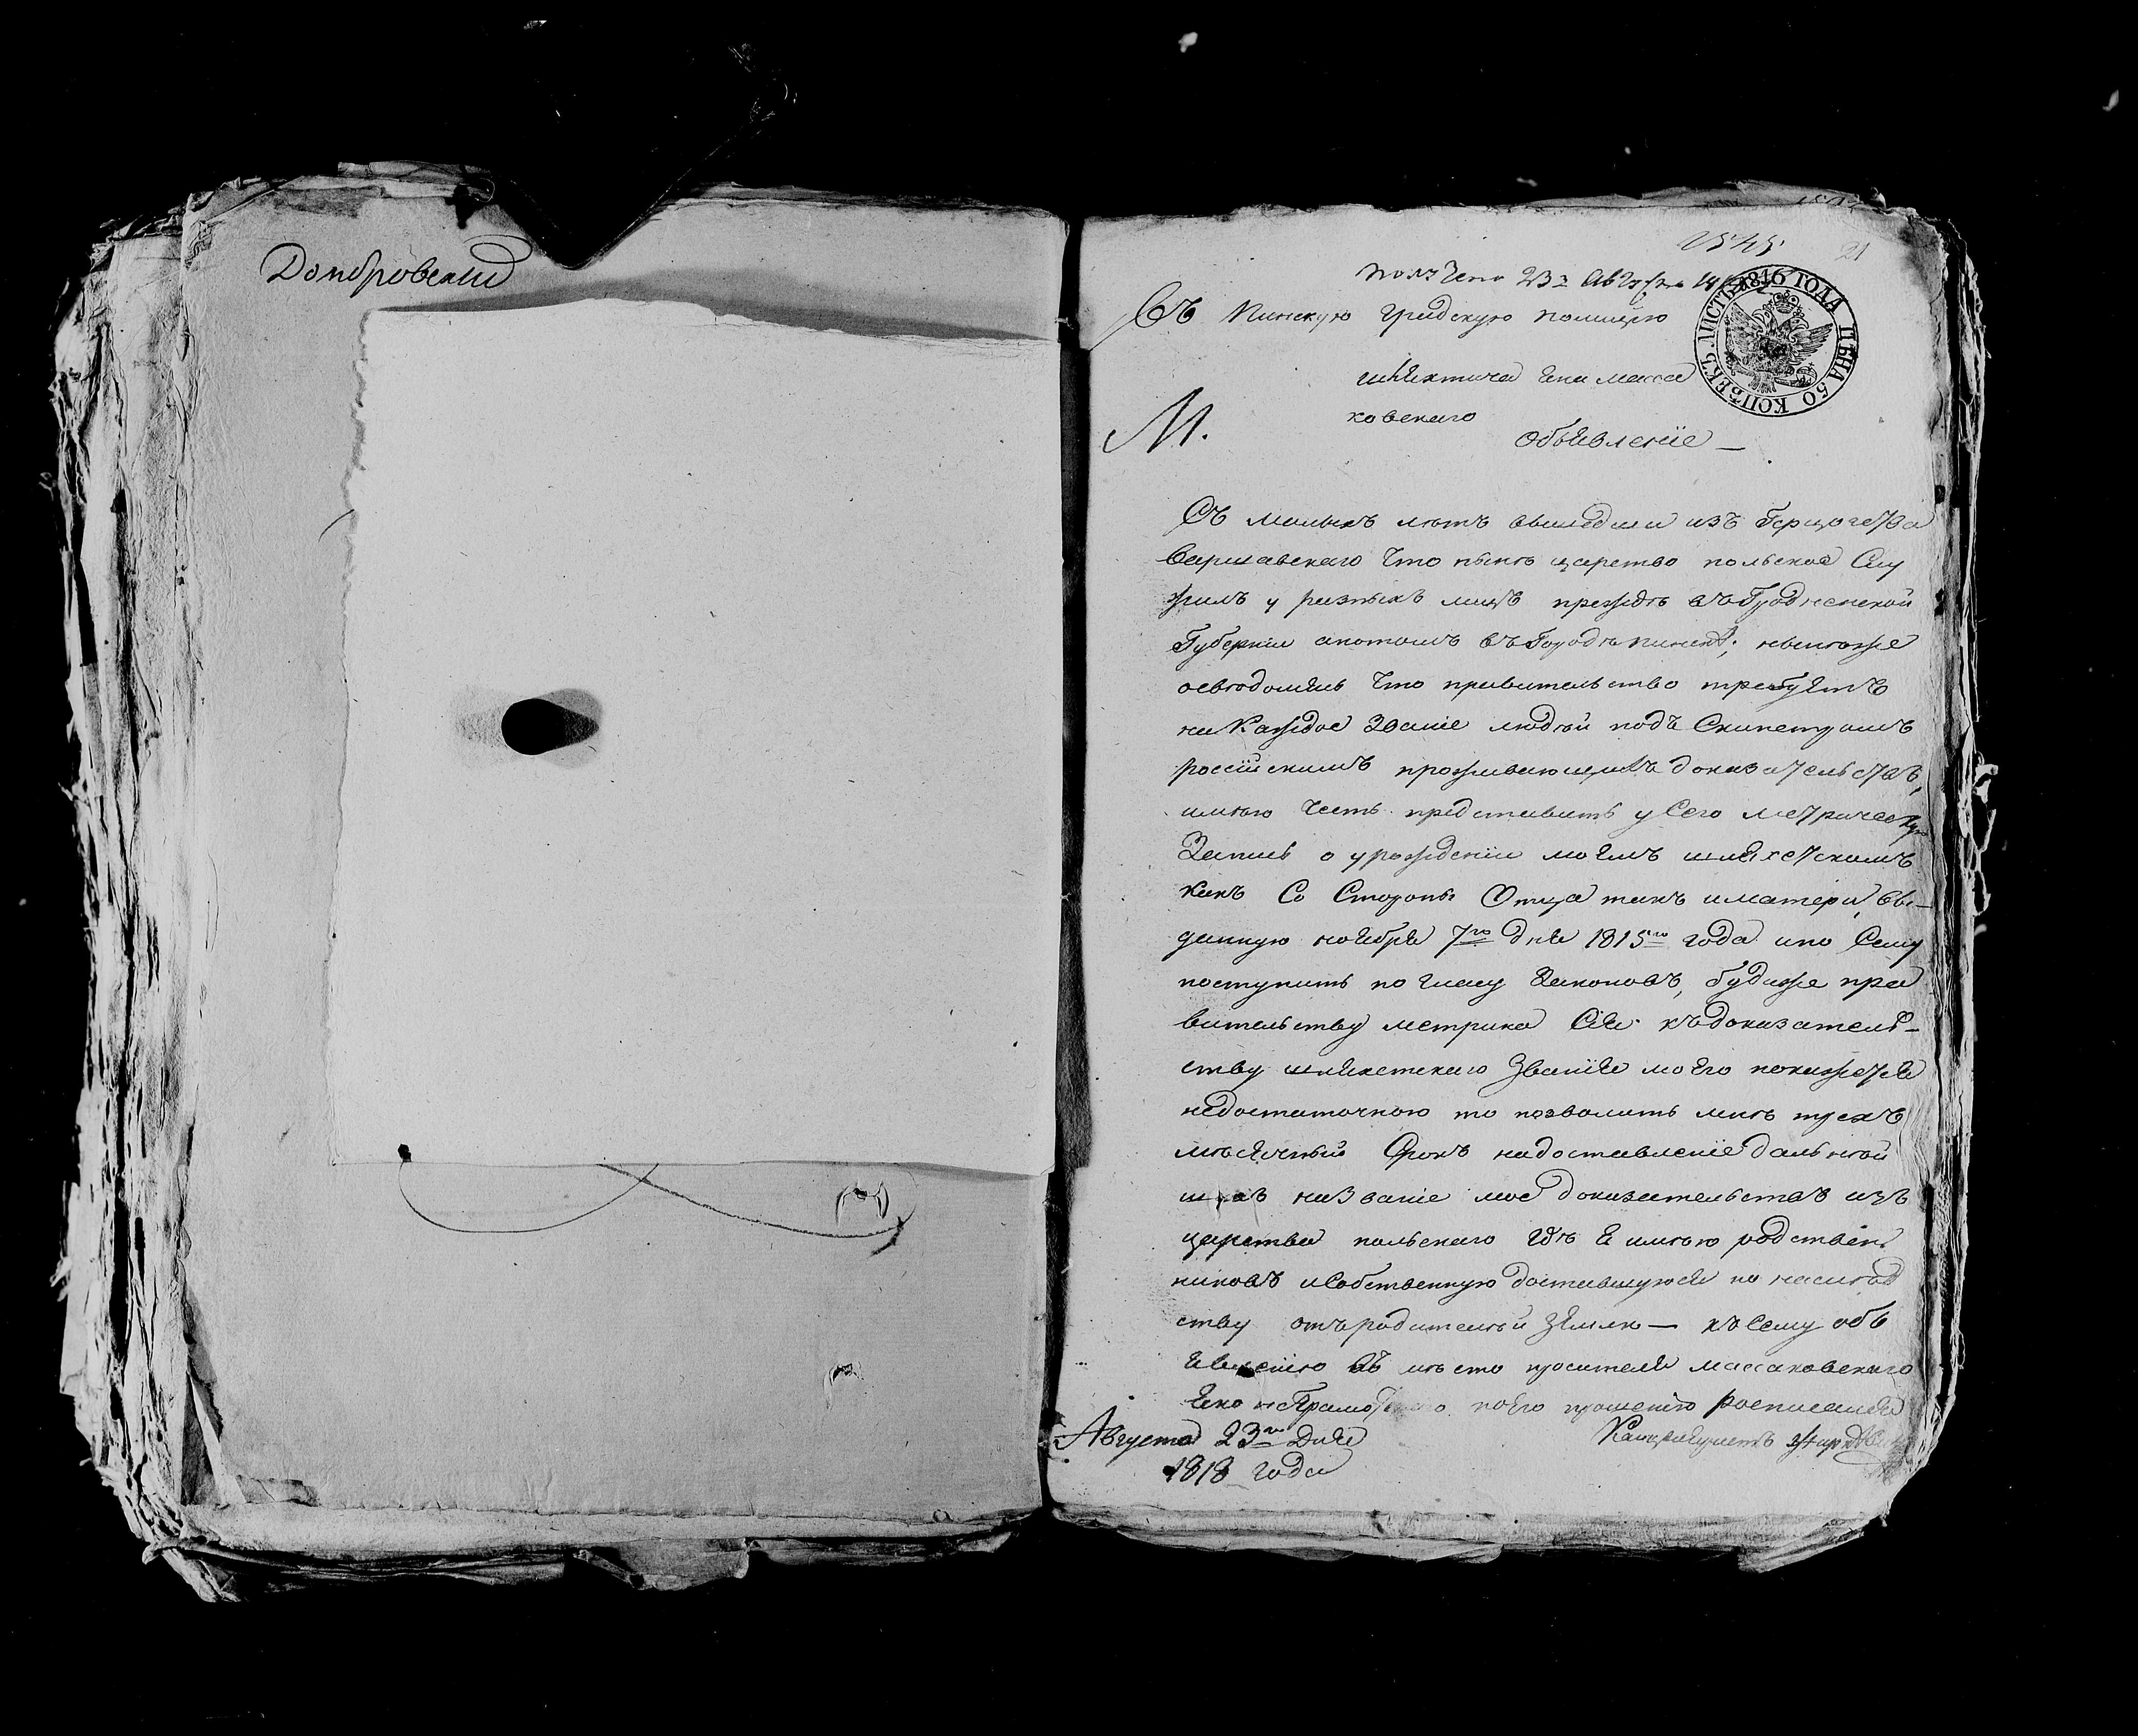 Домбровскій
2545
21
получено 23 августа
Въ Пинскую градскую полицію
шляхтича Яна Масса
ковскаго
М.
Объявленіе —
ЛИСТЪ 1816 ГОДА ЦѢНА 50 КОПѢЕКЪ.
Съ малыхъ лѣтъ вышедши изъ Герцогства
Варшавскаго что нынѣ царство польское Слу
жилъ у разныхъ лицъ прежде въ Гродненской
Губерніи а потомъ въ Городѣ Пинскѣ; нынѣже
освѣдомясь что правительство требуетъ
на Каждое Званіе людей подъ Скипетромъ
россійскимъ проживающихъ доказательствъ,
имѣю честь представить у Сего метрическую
Запись о урожденіи моемъ шляхетскомъ
какъ Со Стороны Отца такъ и матери, вы-
данную ноября 7го дня 1815го года и по Сему
поступить по гласу Законовъ, будеже пра
вительству метрика Сія къ доказатель-
ству шляхетскаго Званія моего покажется
недостаточною то позволить мнѣ трехъ
мѣсячный Срокъ на доставленіе дальнѣй
шихъ на Званіе мое доказательствъ изъ
царства польскаго гдѣ я имѣю родствен
никовъ и Собственную доставшуюся по наслѣд
ству отъ родителей Землю — къ Сему объ
явленію въ мѣсто просителя массаковскаго
яко неграмотнаго по Его прошенію росписался
Августа 23го Дня
Канцеляристъ
1818 года